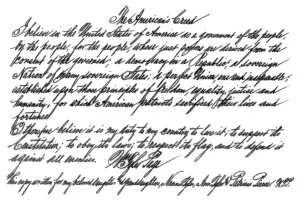 The American's Creed
I believe in the United States of America as a government of the people,
by the people, for the people, whose just powers are derived from the
consent of the governed; a democracy in a Republic; a sovereign
Nation of many sovereign States; a perfect Union, one and inseparable;
established upon those principles of freedom, equality, justice and
humanity, for which American patriots sacrificed their lives and
fortunes.
I therefore believe it is my duty to my country to love it; to support its
Constitution; to obey its laws; to respect its flag, and to defend it
against all enemies.
This copy written for my beloved daughter